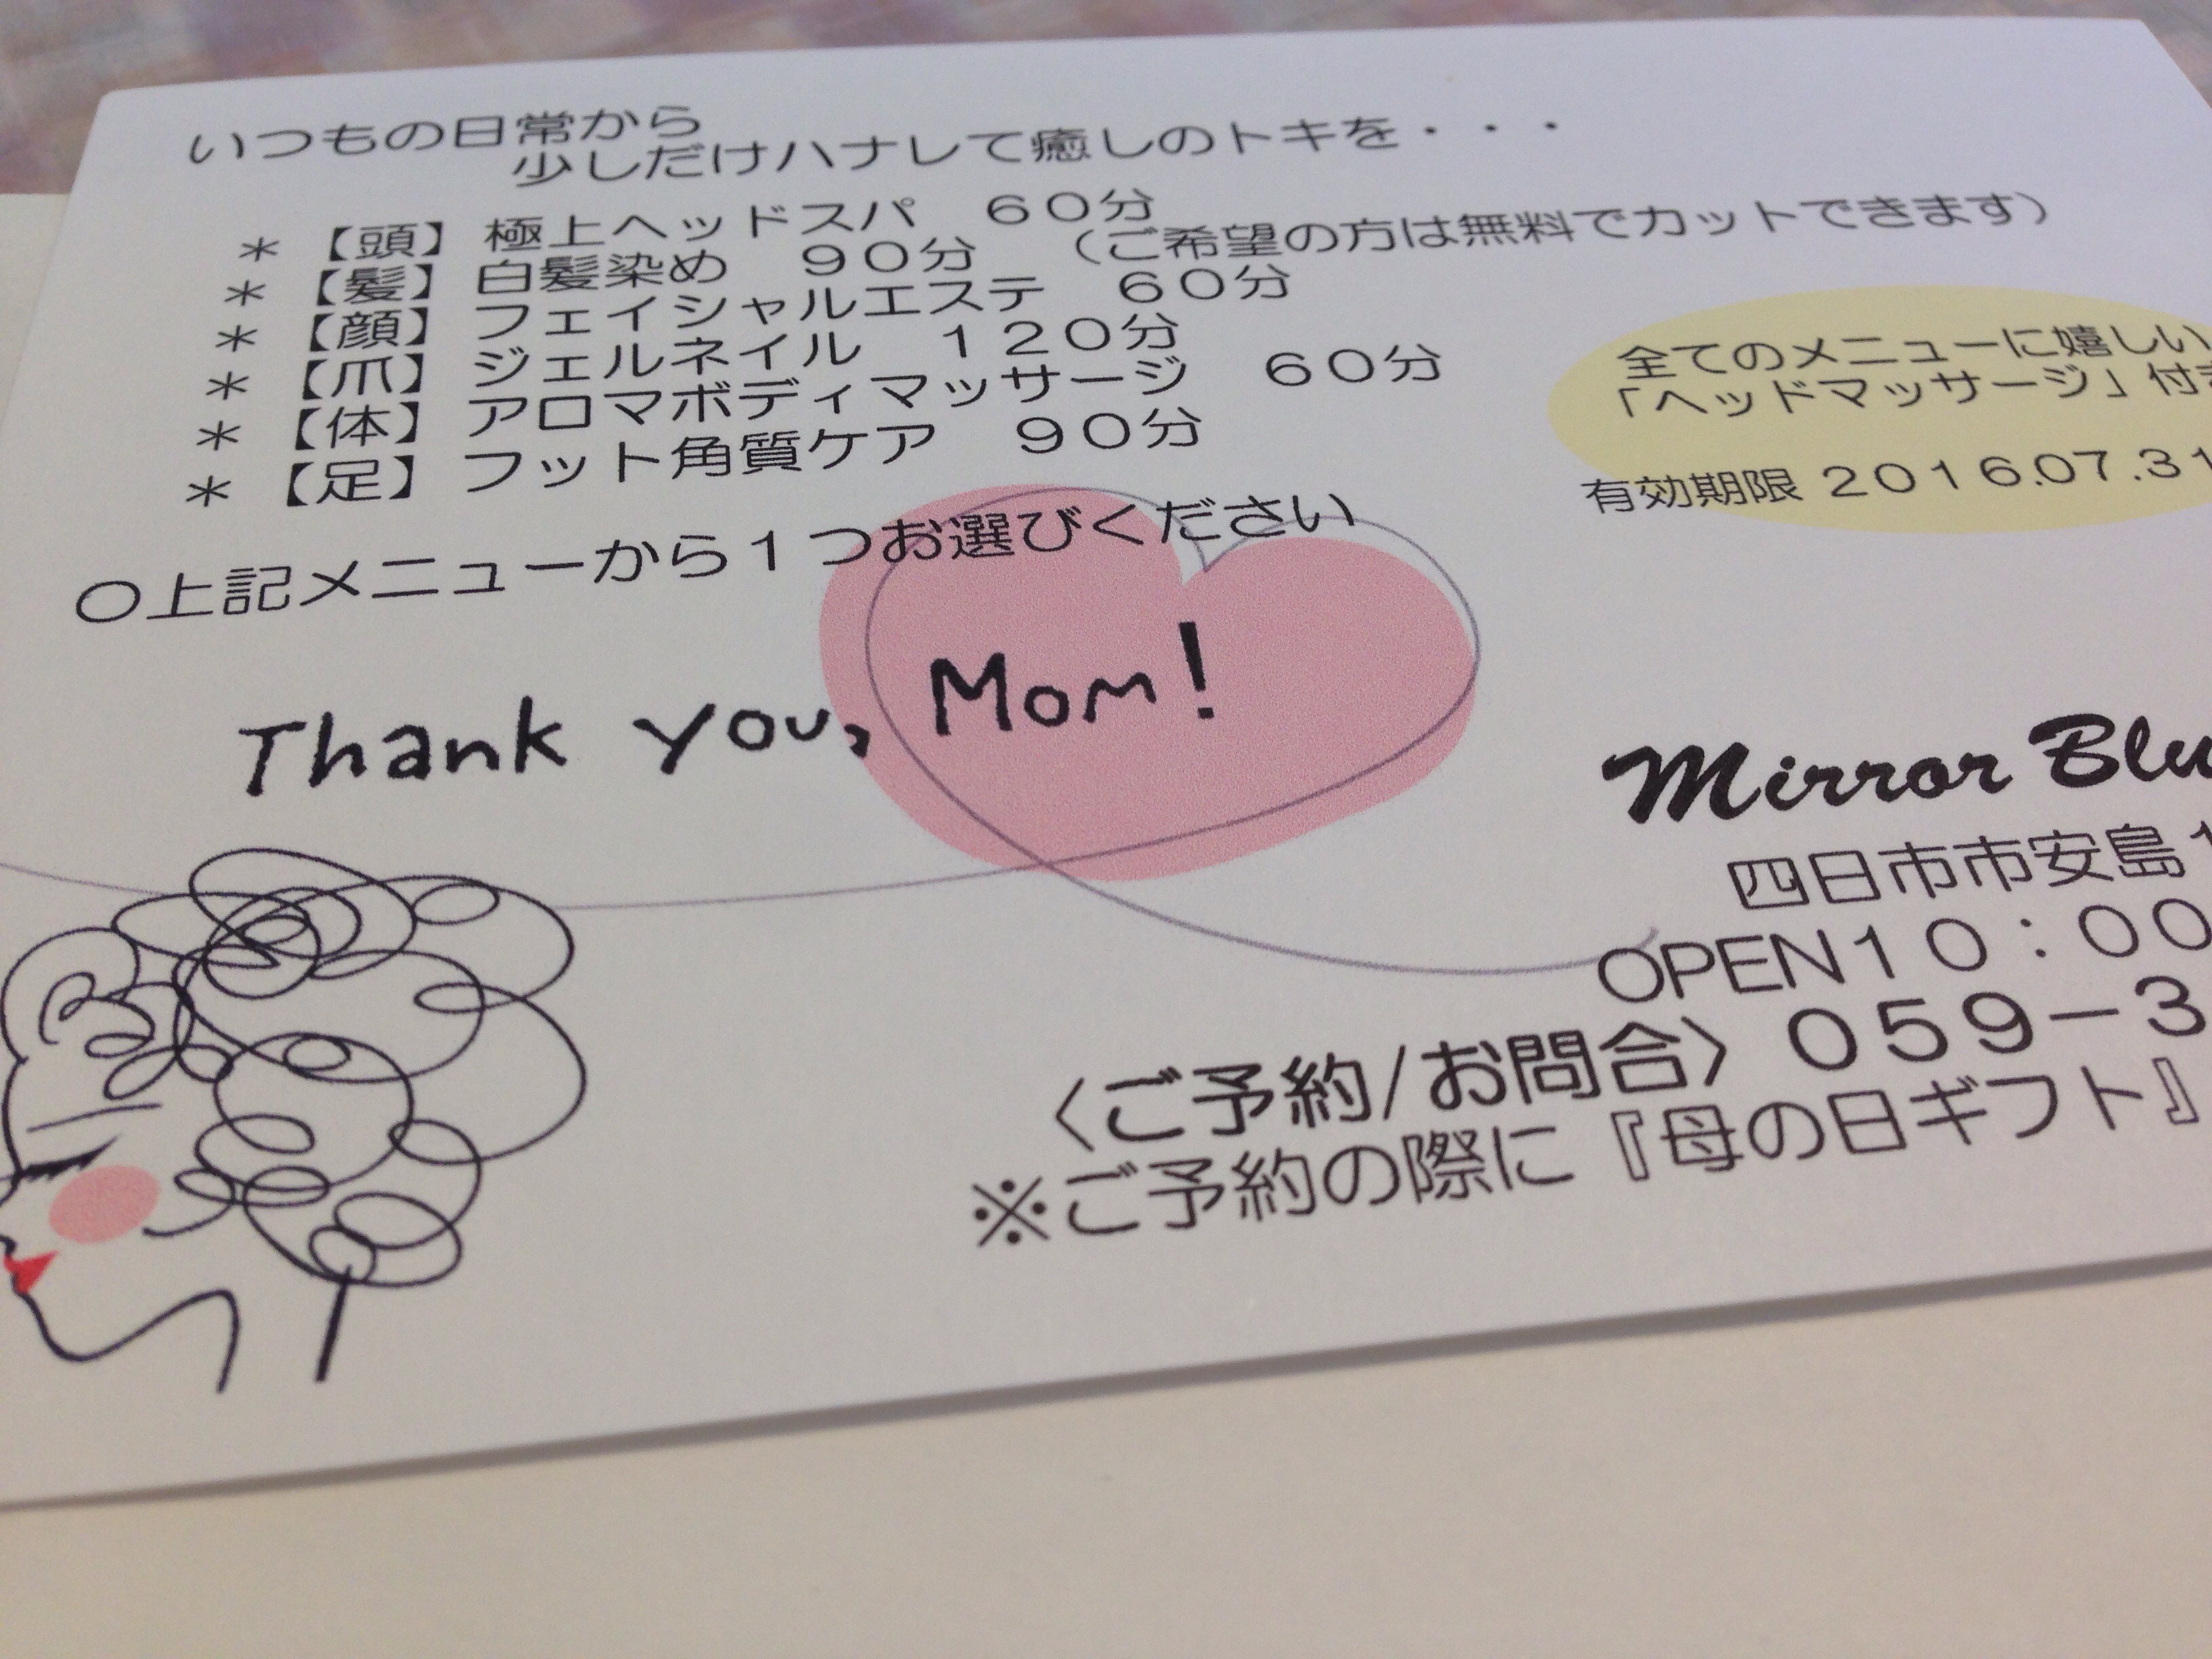 いつもの日常から
少しだけハナレて癒しのトキを・・・
＊【頭】極上ヘッドスパ　６０分
＊【髪】白髪染め　９０分　（ご希望の方は無料でカットできます）
＊【顔】フェイシャルエステ　６０分
＊【爪】ジェルネイル　１２０分
＊【体】アロマボディマッサージ　６０分
＊【足】フット角質ケア　９０分
全てのメニューに嬉しい
「ヘッドマッサージ」付き
有効期限 ２０１６.07.31
〇上記メニューから１つお選びください
Thank you, Mom!
Mirror Blu
四日市市安島１
OPEN１０：００
〈ご予約/お問合〉０５９－３
※ご予約の際に『母の日ギフト』